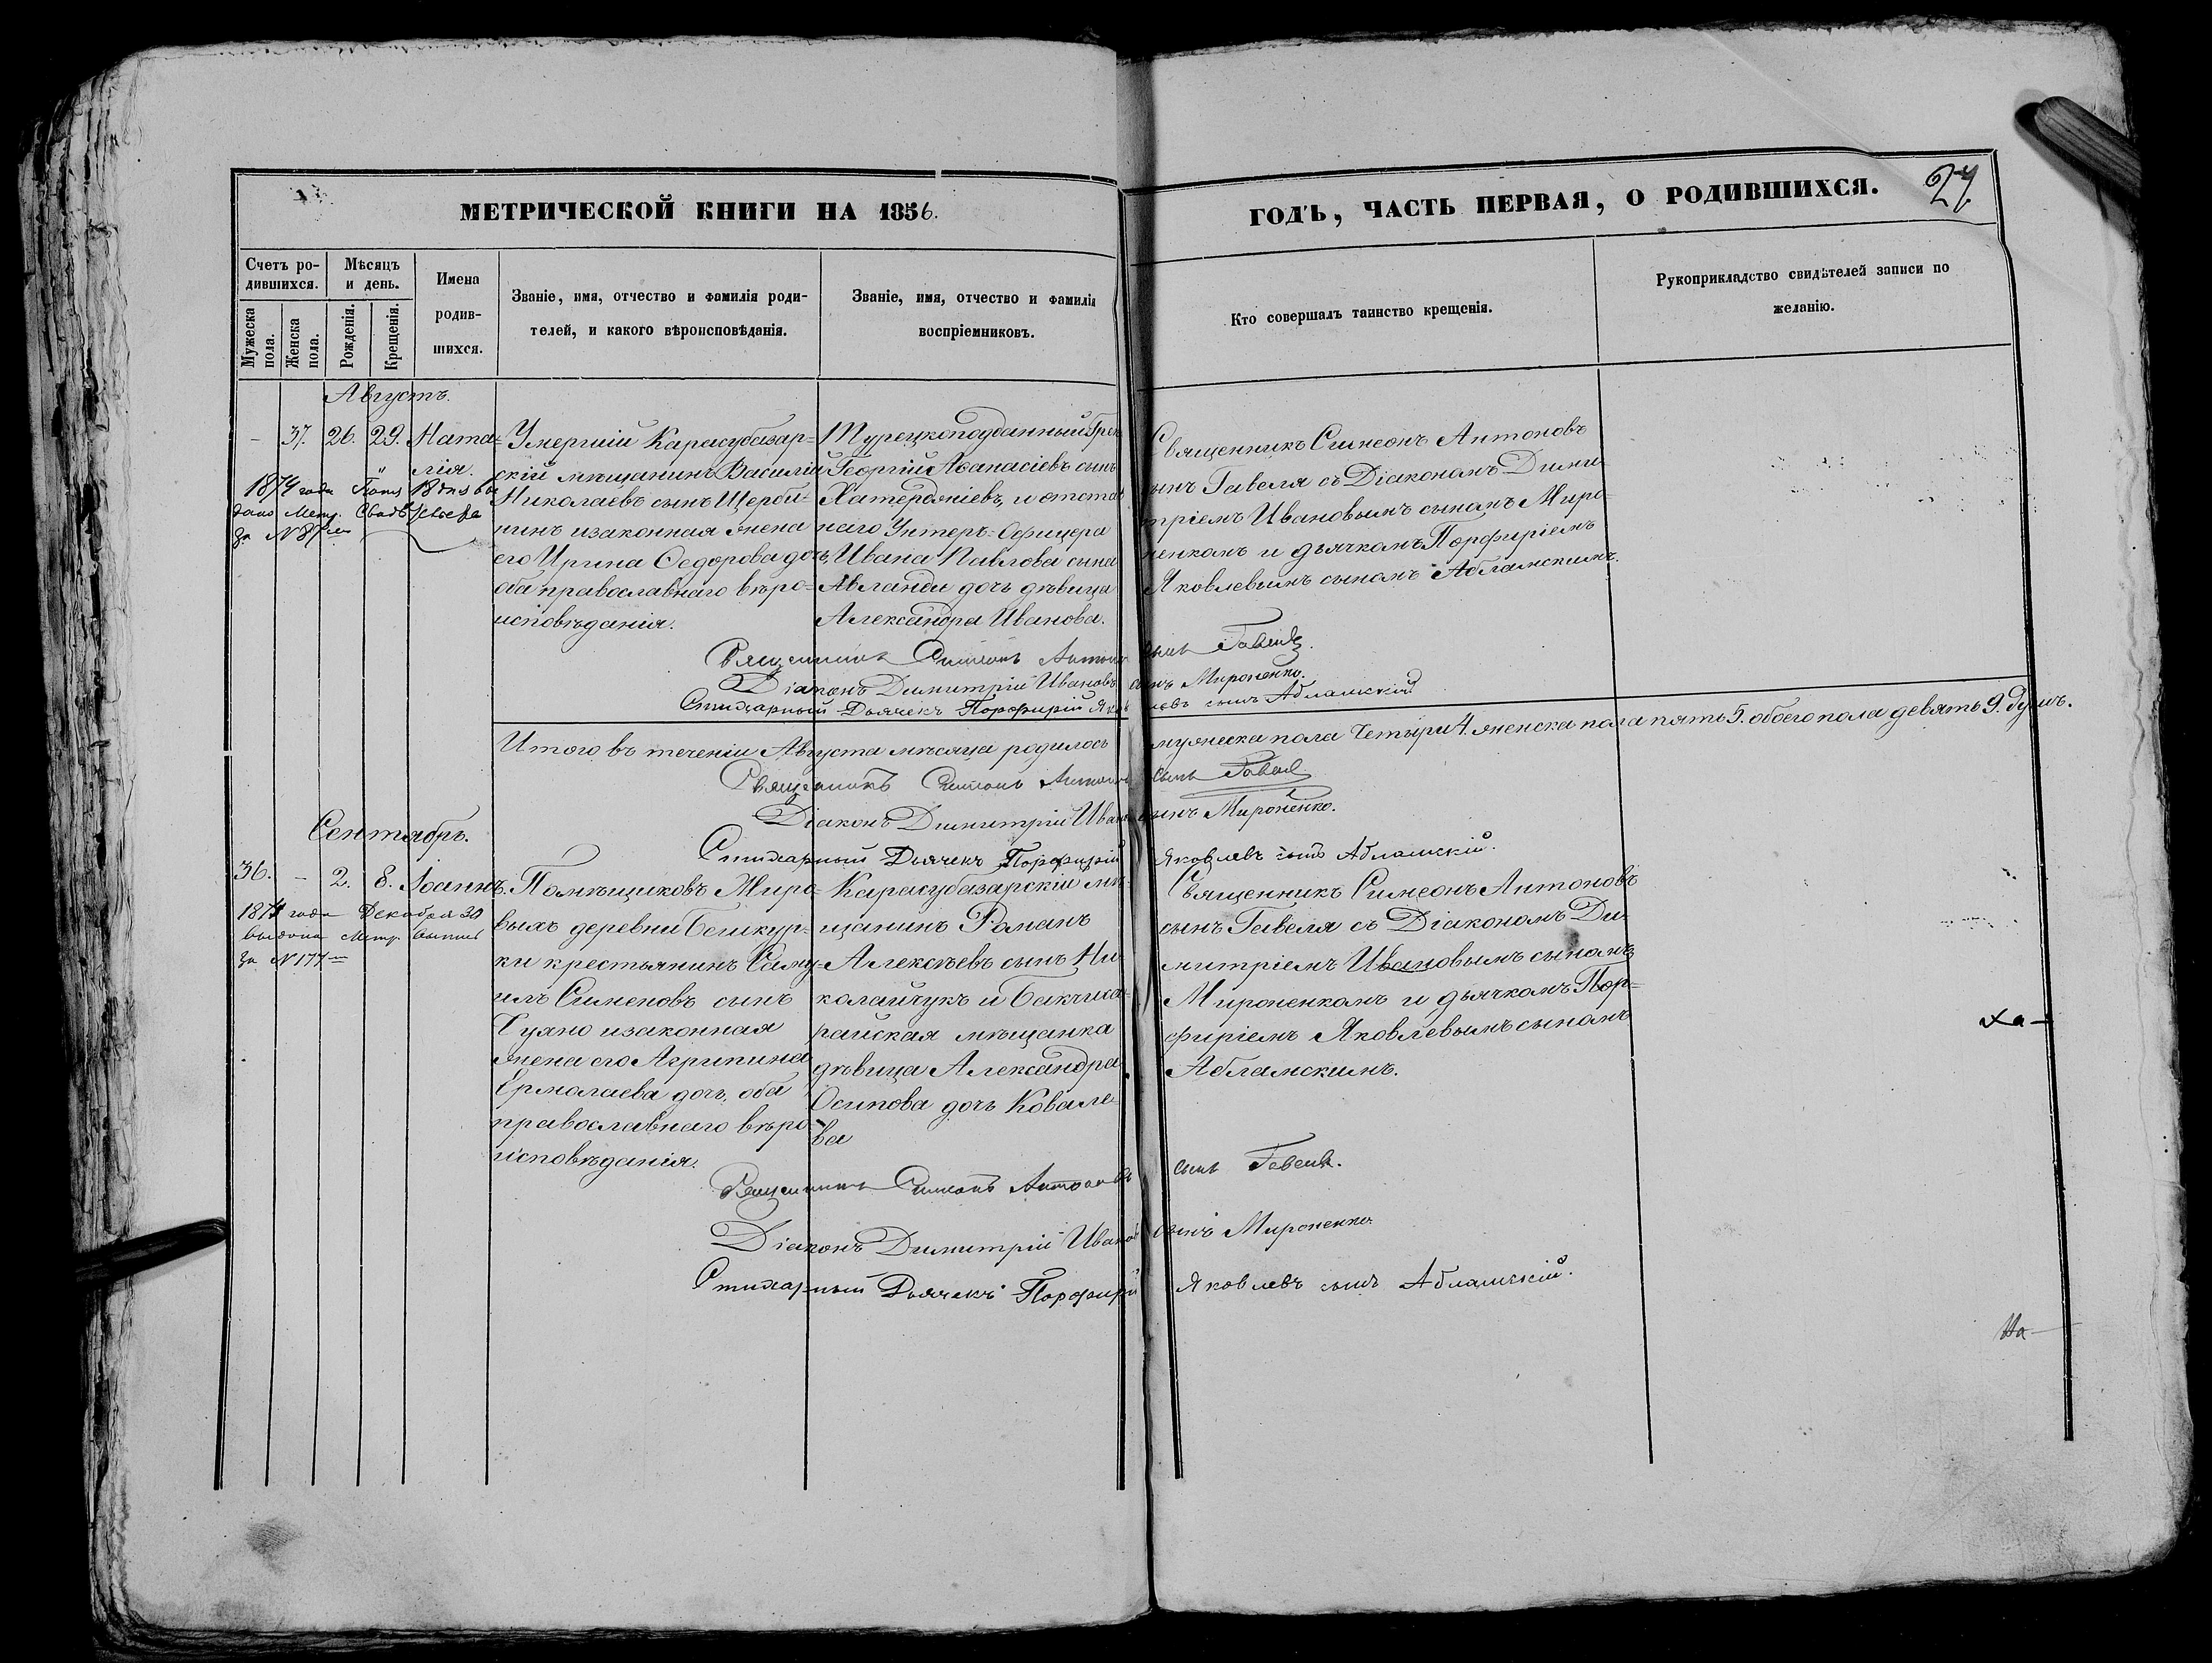 МЕТРИЧЕСКОЙ КНИГИ НА 1856.
ГОДЪ, ЧАСТЬ ПЕРВАЯ, О РОДИВШИХСЯ.
27.
Счетъ ро-
дившихся.
Мужеска
пола.
Женска
пола.
Мѣсяцъ
и день.
Рожденія.
Крещенія.
Имена
родив-
шихся.
Званіе, имя, отчество и фамилія роди-
телей, и какого вѣроисповѣданія.
Званіе, имя, отчество и фамилія
воспріемниковъ.
Кто совершалъ таинство крещенія.
Рукоприкладство свидѣтелей записи по
желанію.
Августъ.
- 37. 26. 29. Ната=
лія.
1874 года
дано Метр. Свид.
за №
Умершій Карасубазар=
скій мѣщанинъ Василій
Николаевъ сынъ Щерби=
нинъ изаконная жена
его Ирина Ѳедорова дочь,
оба православнаго вѣро=
исповѣданія.
Турецкоподданный Грек
Георгій Аѳанасіевъ сынъ
Хатерджіевъ, и отстав
наго Унтеръ=Офицера
Ивана Павлова сына
Авланди дочь дѣвица
Александра Иванова.
Священникъ Симеонъ Антоновъ
сынъ Гавеля съ Діакономъ Дими-
тріемъ Ивановымъ сыномъ Миро-
ненкомъ и дьячкомъ Порфиріемъ
Яковлевымъ сыномъ Абламскимъ.
Священникъ Симеонъ Антоновъ сынъ Гавеля.
Діаконъ Димитрій Ивановъ сынъ Мироненко.
Стихарный Дьячекъ Порфирій Яковлевъ сынъ Абламскій
Итого въ теченіи Августа мѣсяца родилось мужеска пола Четыри 4. женска пола пять 5. обоего пола девять 9. душъ.
Священникъ Симеонъ Антоновъ сынъ Гавеля
Діаконъ Димитрій Иванов сынъ Мироненко.
Стихарный Дьячекъ Порфирій Яковлевъ сынъ Абламскій.
Сентябрь.
36. - 2. 8. Іоаннъ.
1874 года Декабря 30
выдана Метр. выпись
за № 177
Помѣщиковъ Миро=
выхъ деревни Бешкур=
ки крестьянинъ Саму=
илъ Сименовъ сынъ
Чужно изаконная
жена его Агрипина
Ермолаева дочь, оба
православнаго вѣро=
исповѣданія.
Карасубазарскій мѣ=
щанинъ Романъ
Алексѣевъ сынъ Ни
колайчукъ и Бакчиса=
райская мѣщанка
дѣвица Александра
Осипова дочь Ковале=
ва
Священникъ Симеонъ Антоновъ
сынъ Гавеля съ Діакономъ Ди-
митріемъ Ивановымъ сыномъ
Мироненкомъ и дьячкомъ Пор=
фиріемъ Яковлевымъ сыномъ
Абламскимъ.
Священникъ Симеонъ Антоновъ сынъ Гавеля.
Діаконъ Димитрій Иванов сынъ Мироненко
Стихарный Дьячекъ Порфирій Яковлевъ сынъ Абламскій.